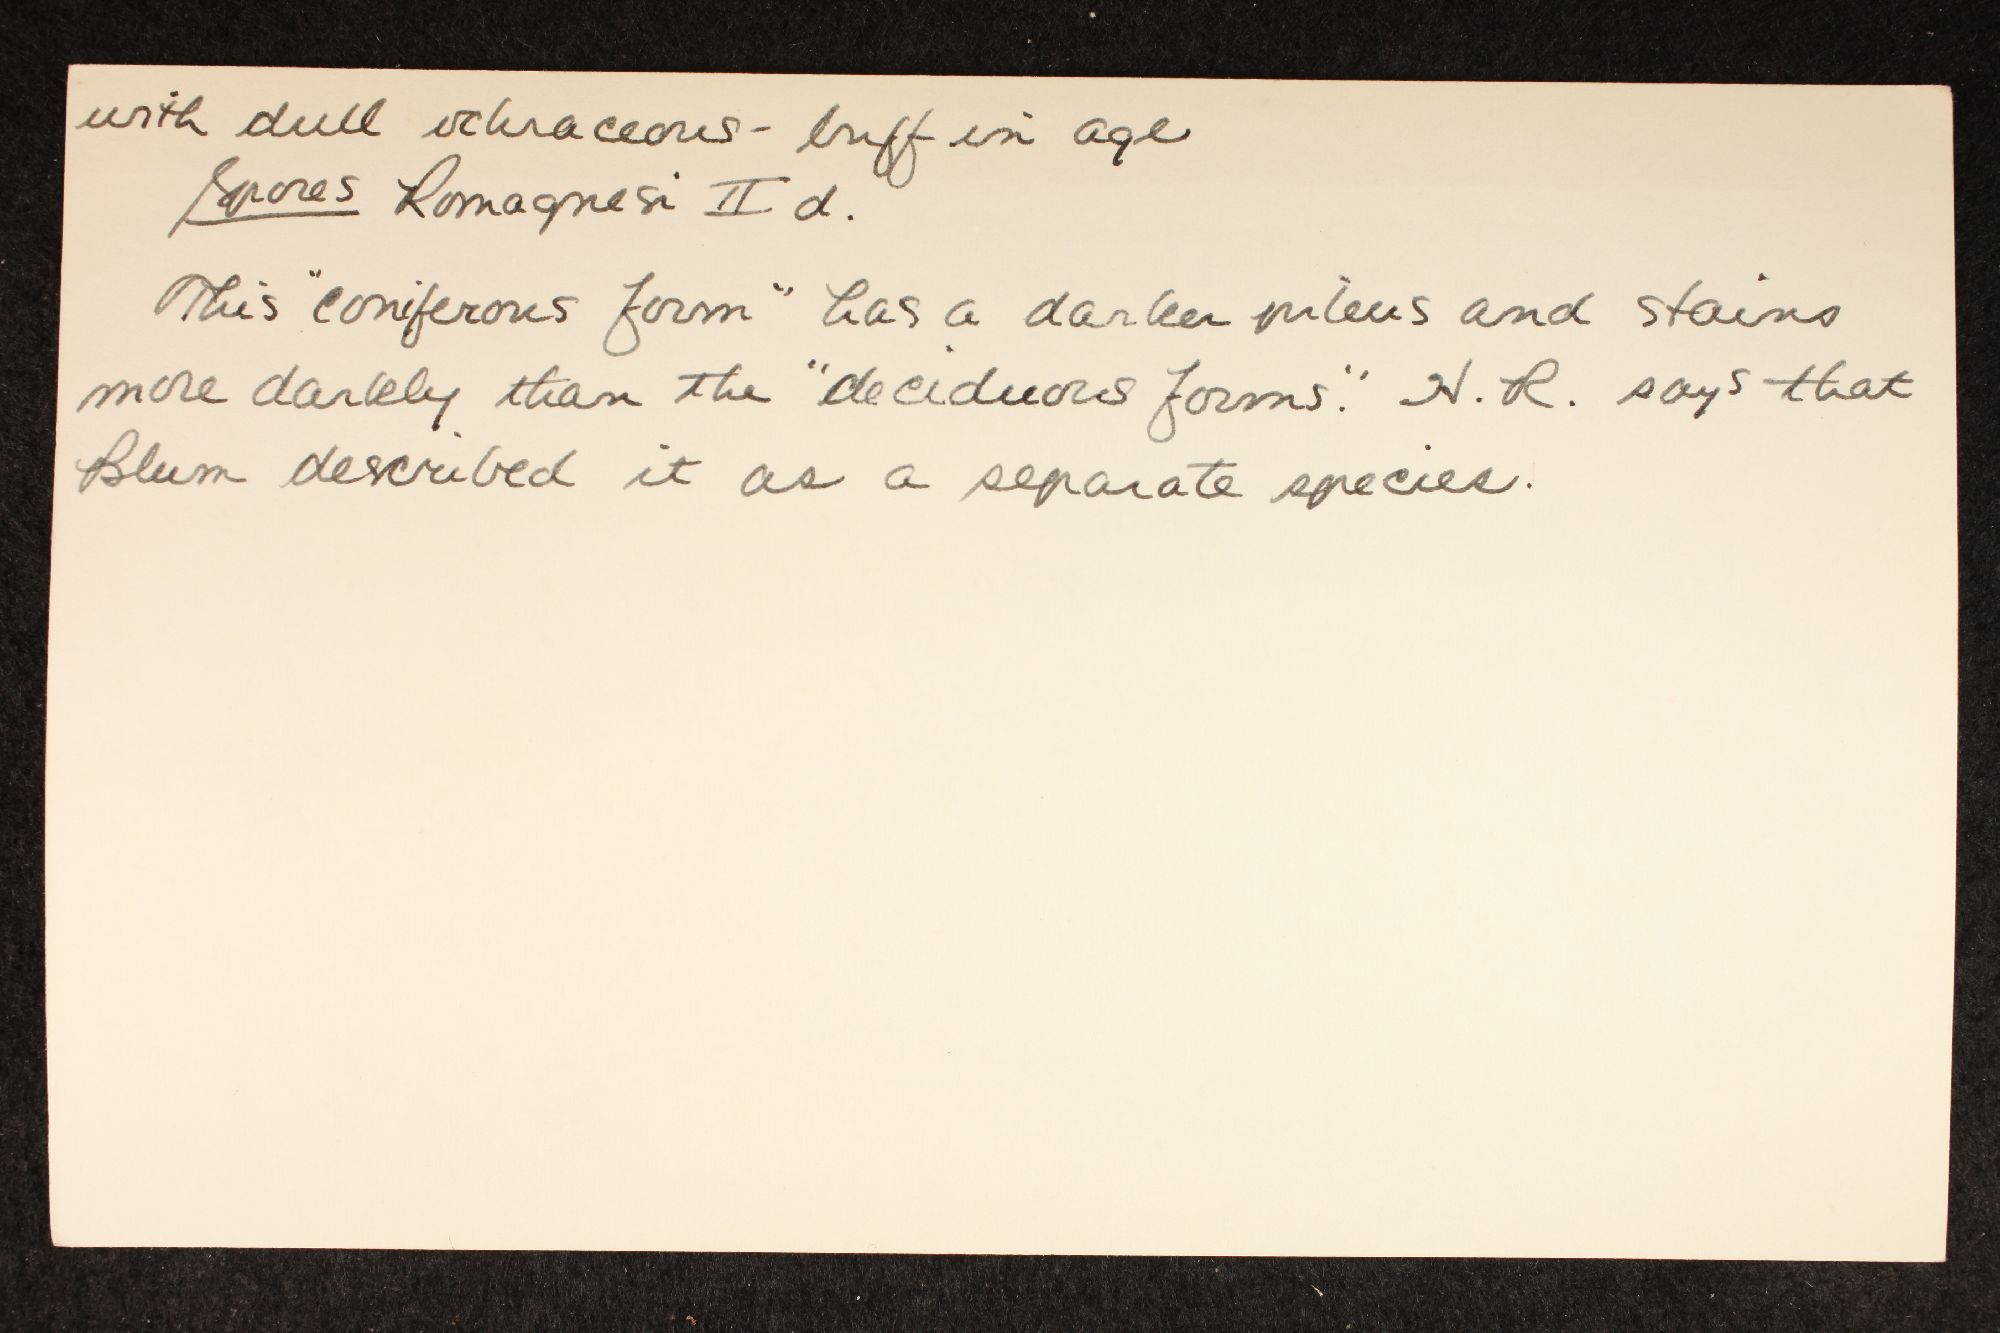 with dull ochraceous-buff in age
Spores Romagnesi II d.
This "coniferous form" has a darker pileus and stains
more darkly than the "deciduous forms". H. R. says that
Blum described it as a separate species.